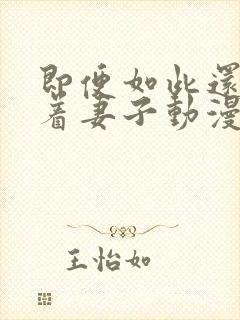 即便如此還
着妻子動漫
王怡如